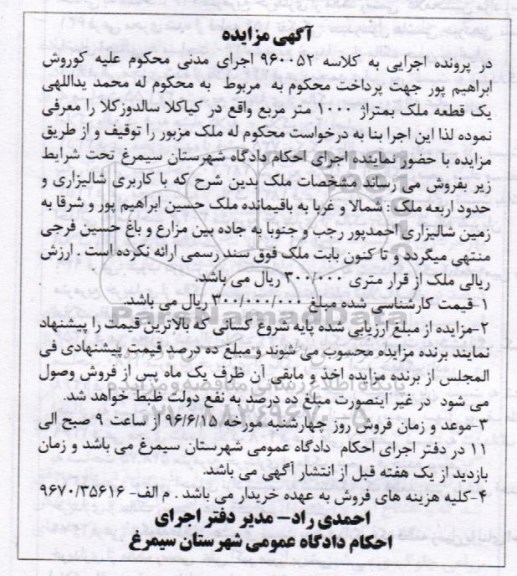 آگهی مزایده
در پرونده اجرایی به کلاسه ۹۶۰۰۵۲ اجرای مدنی محکوم علیه کوروش
ابراهیم پور جهت پرداخت محکوم به مربوط به محکوم له محمد یداللهی
یک قطعه ملک بمتراژ ۱۰۰۰ متر مربع واقع در کیاکلا سالدوزکلا را معرفی
نموده لذا این اجرا بنا به درخواست محکوم له ملک مزبور را توقیف و از طریق
مزایده با حضور نماینده اجرای احکام دادگاه شهرستان سیمرغ تحت شرایط
زیر بفروش می رساند مشخصات ملک بدین شرح که با کاربری شالیزاری و
حدود اربعه ملک : شمالا و غربا به باقیمانده ملک حسین ابراهیم پور و شرقا به
زمین شالیزاری احمدپور رجب و جنوبا به جاده بین مزارع و باغ حسین فرجی
منتهی میگردد و تا کنون بابت ملک فوق سند رسمی ارائه نکرده است . ارزش
ریالی ملک از قرار متری ۳۰۰/۰۰۰ ریال می باشد.
۱-قیمت کارشناسی شده مبلغ ۳۰۰/۰۰۰/۰۰۰ ریال می باشد.
۲-مزایده از مبلغ ارزیابی شده پایه شروع کسانی که بالاترین قیمت را پیشنهاد
نمایند برنده مزایده محسوب می شوند و مبلغ ده درصد قیمت پیشنهادی فی
المجلس از برنده مزایده اخذ و مابقی آن ظرف یک ماه پس از فروش وصول
می شود در غیر اینصورت مبلغ ده درصد به نفع دولت ظبط خواهد شد.
۳-موعد و زمان فروش روز چهارشنبه مورخه ۹۶/۶/۱۵ از ساعت ۹ صبح الی
۱۱ در دفتر اجرای احکام دادگاه عمومی شهرستان سیمرغ می باشد و زمان
بازدید از یک هفته قبل از انتشار آگهی می باشد.
۴-کلیه هزینه های فروش به عهده خریدار می باشد . م الف- ۹۶۷۰/۳۵۶۱۶
احمدی راد- مدیر دفتر اجرای
احکام دادگاه عمومی شهرستان سیمرغ